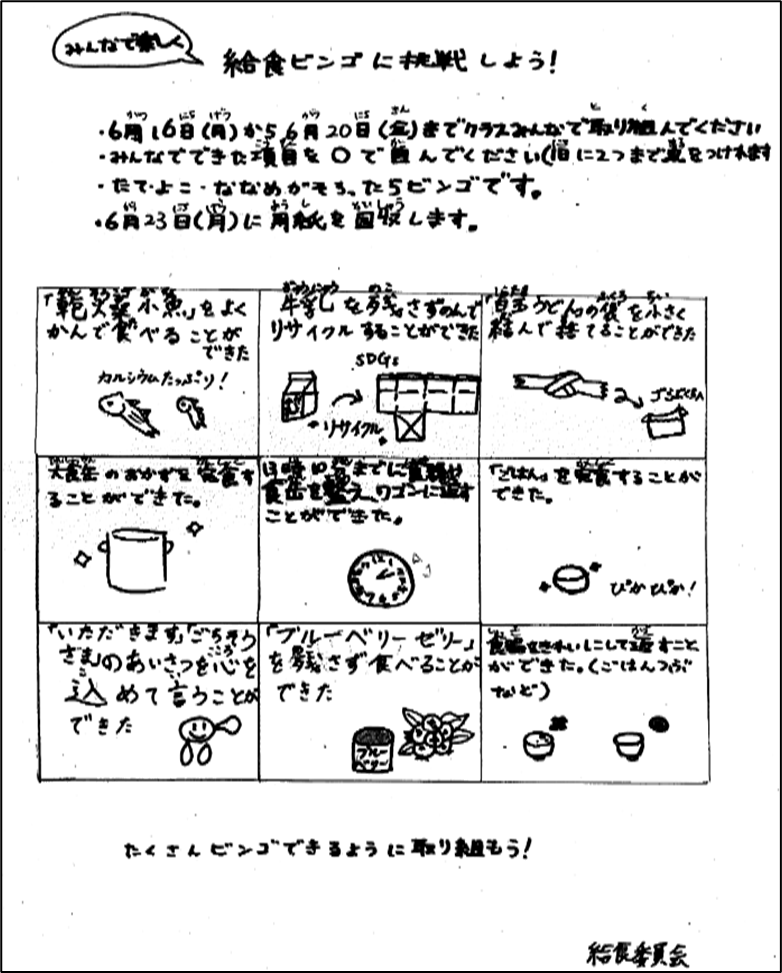 みんなで楽しく
給食ビンゴに挑戦しよう!
・6月16日(月)から6月20日(金)までクラスみんなで取り組んでください
・みんなでできた項目を〇で囲んでください(1日に2つまで〇をつけれます
・たて・よこ・ななめがそろったらビンゴです。
・6月23日(月)に用紙を回収します。
「乾燥小魚」をよく
かんで食べることが
できた
カルシウムたっぷり!
牛乳を残さずのんで
リサイクルすることができた
SDGs
リサイクル
「白玉うどん」の袋を小さく
結んで捨てることができた
ゴミぶくろへ
大食缶のおかずを完食す
ることができた。
13時10分までに食器や
食缶を整え、ワゴンに返す
ことができた。
「ごはん」を完食することが
できた。
ぴかぴか!
「いただきます」「ごちそう
さま」のあいさつを心を
込めて言うことが
できた
「ブルーベリーゼリー」
を残さず食べることが
できた
ブルー
ベリー
食器をきれいにして返すこと
ができた。(ごはんつぶ
など)
たくさんビンゴできるように取り組もう!
給食委員会